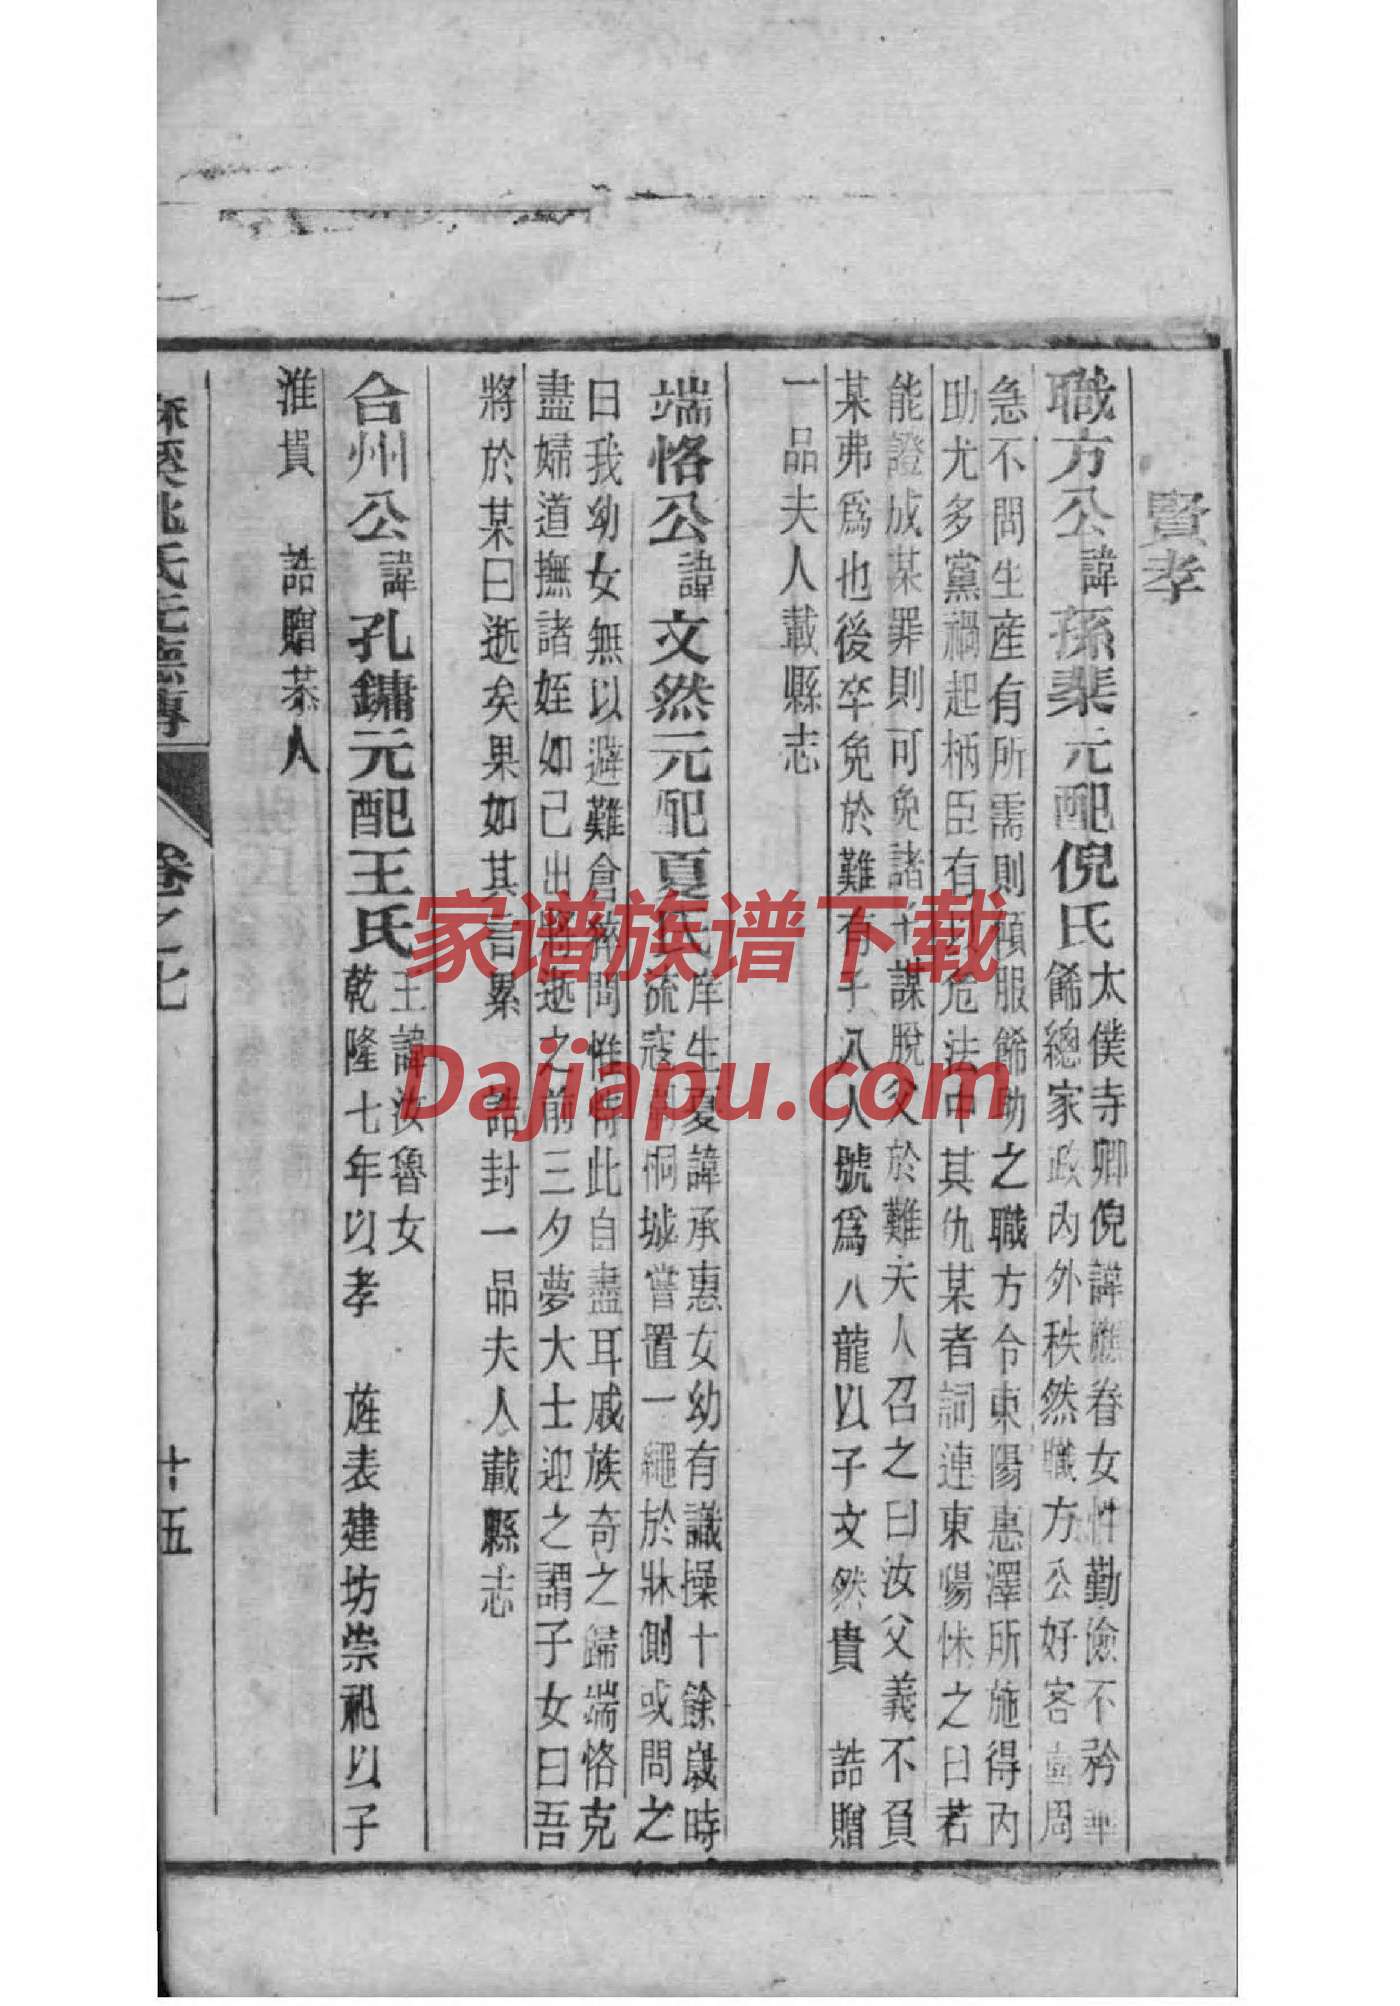 賢孝
職方公諱孫棐元配倪氏
太僕寺卿倪諱應眷女性勤儉不矜華
餙總家政內外秩然職方公好客喜周
急不問生産有所需則頓服餙助之職方令東陽惠澤所施得內
助尤多黨禍起柄臣有以危法中其仇某者詞連東陽怵之曰若
能證成某罪則可免諸士謀脫父於難夫人召之曰汝父義不負
某弗爲也後卒免於難有子八人號爲八龍以子文然貴 誥贈
一品夫人載縣志
端恪公諱文然元配夏氏
庠生夏諱承惠女幼有識操十餘歲時
流寇 桐城嘗置一繩於牀側或問之
曰我幼女無以避難倉猝間惟恃此自盡耳戚族奇之歸端恪克
盡婦道撫諸姪如己出將逝之前三夕夢大士迎之謂子女曰吾
將於某日逝矣果如其言累 誥封一品夫人載縣志
台州公諱孔鏞元配王氏
王諱汝魯女
乾隆七年以孝 旌表建坊崇祀以子
淮貴 誥贈恭人
麻溪姚氏先德傳 卷之七 十五
家谱族谱下载
Dajiapu.com